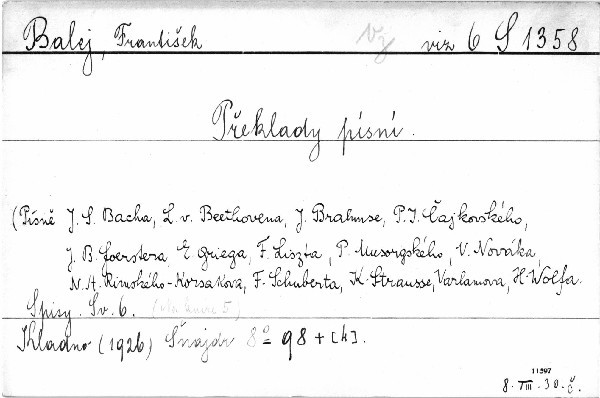 Balej, František viz 6 S 1358
Překlady písní.
(Písně J. S. Bacha, L. v. Beethovena, J. Brahmse, P. I. Čajkovského,
J. B. Foerstera, E. Griega, F. Liszta, P. Musorgského, V. Nováka,
N. A. Rimského-Korsakova, F. Schuberta, K. Strausse, Varlamova, H. Wolfa.
Spisy. Sv. 6.
Kladno (1926) Šnajdr 8° - 98 + [4].
11597
8. VIII. 30. Č.